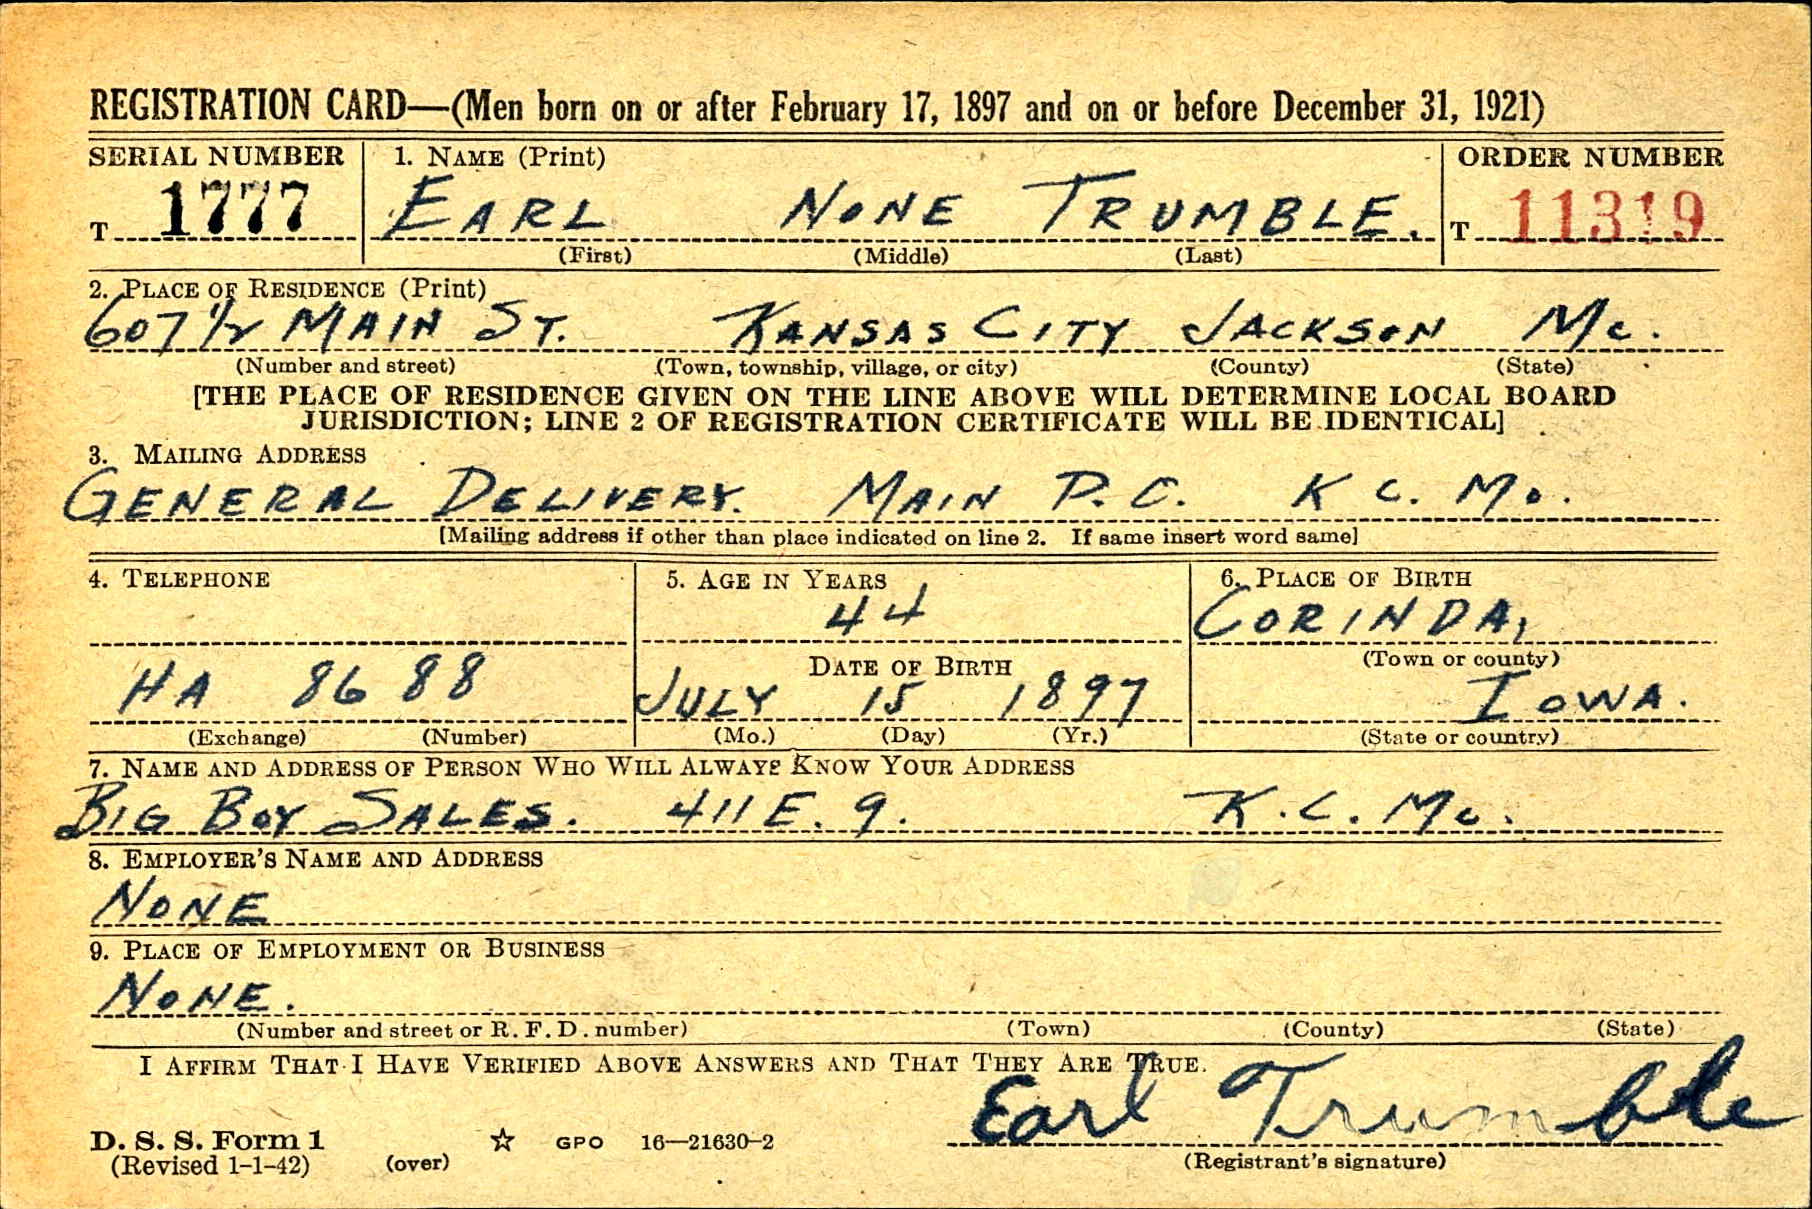 REGISTRATION CARD—(Men born on or after February 17, 1897 and on or before December 31, 1921)
SERIAL NUMBER 1. NAME (Print) ORDER NUMBER
T 1777 EARL NONE TRUMBLE. T 11319
(First) (Middle) (Last)
2. PLACE OF RESIDENCE (Print)
607 1/2 MAIN ST. KANSAS CITY JACKSON Mo.
(Number and street) (Town, township, village, or city) (County) (State)
[THE PLACE OF RESIDENCE GIVEN ON THE LINE ABOVE WILL DETERMINE LOCAL BOARD
JURISDICTION; LINE 2 OF REGISTRATION CERTIFICATE WILL BE IDENTICAL]
3. MAILING ADDRESS
GENERAL DELIVERY. MAIN P.O. K C. Mo.
[Mailing address if other than place indicated on line 2. If same insert word same]
4. TELEPHONE 5. AGE IN YEARS 6. PLACE OF BIRTH
44 CORINDA,
DATE OF BIRTH (Town or county)
HA 8688 JULY 15 1897 IOWA.
(Exchange) (Number) (Mo.) (Day) (Yr.) (State or country)
7. NAME AND ADDRESS OF PERSON WHO WILL ALWAYS KNOW YOUR ADDRESS
BIG BOY SALES. 411 E. 9. K.C. Mo.
8. EMPLOYER'S NAME AND ADDRESS
NONE
9. PLACE OF EMPLOYMENT OR BUSINESS
NONE.
(Number and street or R. F. D. number) (Town) (County) (State)
I AFFIRM THAT I HAVE VERIFIED ABOVE ANSWERS AND THAT THEY ARE TRUE.
Earl Trumble
D. S. S. Form 1 ☆ GPO 16—21630-2
(Revised 1-1-42) (over) (Registrant's signature)